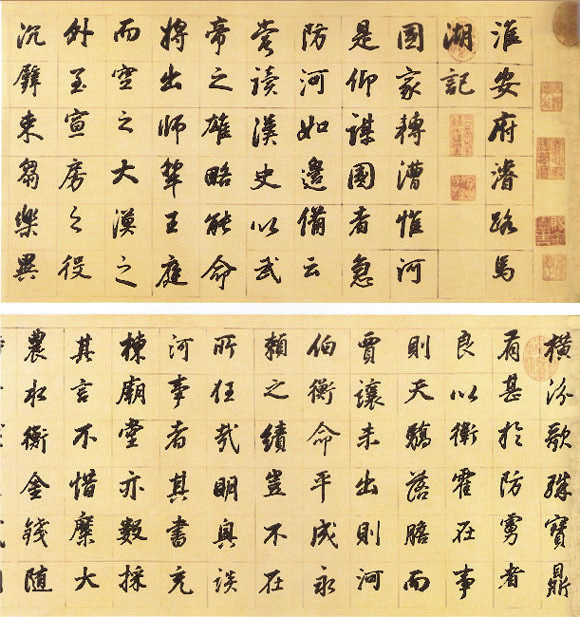 淮安府濬路馬
湖記
國家轉漕惟河
是仰謀國者急
防河如邊備云
嘗讀漢史以武
帝之雄略能命
將出師犂王庭
而空之大漠之
外至宣房之役
沉璧束芻樂異
橫汾歌殊寶鼎
有甚於防虜者
良以衛霍在事
則天驕落膽而
賈讓未出則河
伯衡命平成永
賴之績豈不在
所任哉明興談
河事者其書充
棟廟堂亦數採
其言不惜糜大
農水衡金錢随